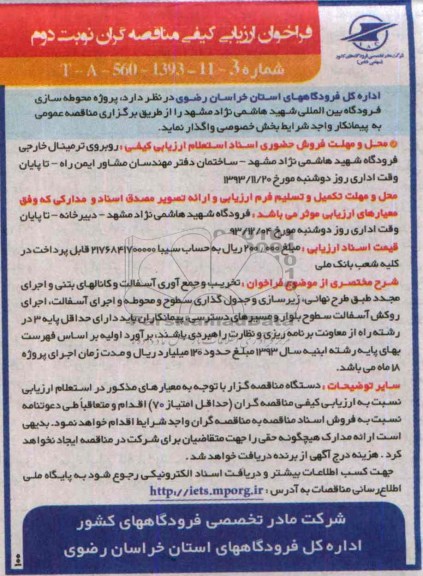 فراخوان ارزیابی کیفی مناقصه گران نوبت دوم
شماره 3 - 11 - 1393 - 560 - T - A
اداره کل فرودگاههای استان خراسان رضوی در نظر دارد، پروژه محوطه سازی
فرودگاه بین المللی شهید هاشمی نژاد مشهد را از طریق برگزاری مناقصه عمومی
به پیمانکار واجد شرایط بخش خصوصی واگذار نماید.
محل و مهلت فروش حضوری اسناد استعلام ارزیابی کیفی : روبروی ترمینال خارجی
فرودگاه شهید هاشمی نژاد مشهد - ساختمان دفتر مهندسان مشاور ایمن راه - تا پایان
وقت اداری روز دوشنبه مورخ ۱۳۹۳/۱۱/۲۰
محل و مهلت تکمیل و تسلیم فرم ارزیابی و ارائه تصویر مصدق اسناد و مدارکی که وفق
معیارهای ارزیابی موثر می باشد : فرودگاه شهید هاشمی نژاد مشهد - دبیرخانه - تا پایان
وقت اداری روز دوشنبه مورخ ۹۳/۱۲/۰۴
قیمت اسناد ارزیابی : مبلغ ۲۰۰٫۰۰۰ ریال به حساب سیبا ۲۱۷۶۸۴۱۷۰۰۰۰۰ قابل پرداخت در
کلیه شعب بانک ملی
شرح مختصری از موضوع فراخوان : تخریب و جمع آوری آسفالت و کانالهای بتنی و اجرای
مجدد طبق طرح نهائی، زیرسازی و جدول گذاری سطوح و محوطه و اجرای آسفالت، اجرای
روکش آسفالت سطوح بلوار و مسیرهای دسترسی، پیمانکاران باید دارای حداقل پایه ۳ در
رشته راه از معاونت برنامه ریزی و نظارت راهبردی باشند، برآورد اولیه بر اساس فهرست
بهای پایه رشته ابنیه سال ۱۳۹۳ مبلغ حدود ۱۲۰ میلیارد ریال و مدت زمان اجرای پروژه
۱۸ ماه می باشد.
سایر توضیحات : دستگاه مناقصه گزار با توجه به معیار های مذکور در استعلام ارزیابی
نسبت به ارزیابی کیفی مناقصه گران (حداقل امتیاز ۷۰) اقدام و متعاقباً طی دعوتنامه
نسبت به فروش اسناد مناقصه به مناقصه گران واجد شرایط اقدام خواهد نمود. بدیهی
است ارائه مدارک هیچگونه حقی را جهت متقاضیان برای شرکت در مناقصه ایجاد نخواهد
کرد . هزینه درج آگهی از برنده دریافت خواهد شد.
جهت کسب اطلاعات بیشتر و دریافت اسناد الکترونیکی رجوع شود به پایگاه ملی
اطلاع رسانی مناقصات به آدرس : http://iets.mporg.ir
شرکت مادر تخصصی فرودگاههای کشور
اداره کل فرودگاههای استان خراسان رضوی